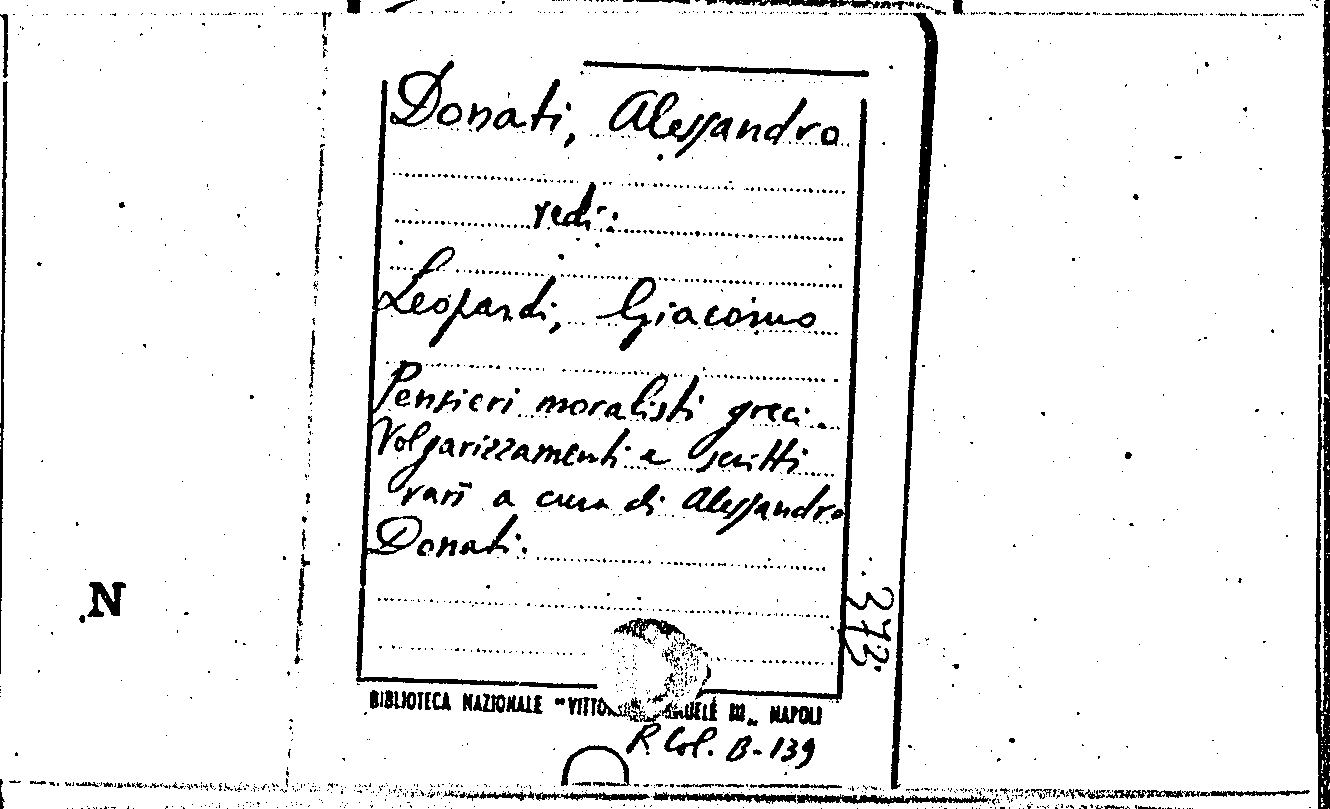 Donati, Alessandro
vedi:
Leopardi, Giacomo
Pensieri moralisti greci.
Volgarizzamenti e scritti
vari a cura di Alessandro
Donati.
373
N
BIBLIOTECA NAZIONALE "VITTO UELE III„ NAPOLI
R Col. B-139